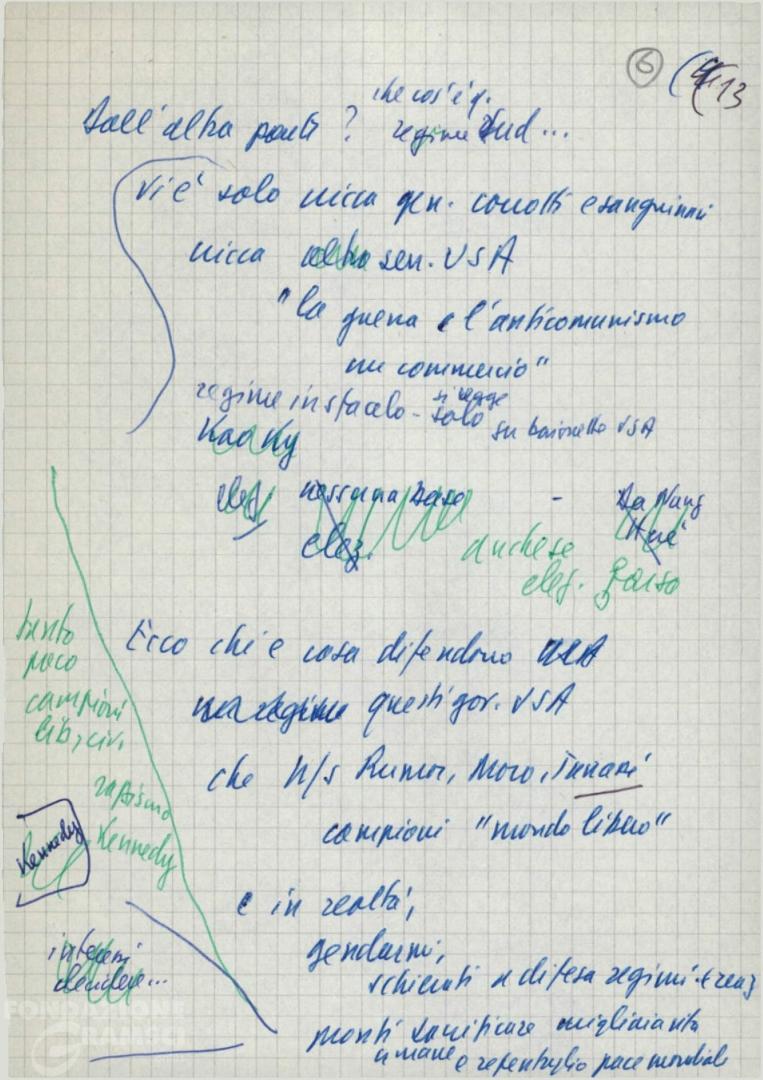 6
13
Dall'altra parte? che cos'è q.
regime Sud...
Vi è solo cricca gen. corrotti e sanguinari
cricca sen. USA
"la guerra e l'anticomunismo
un commercio"
regime in sfacelo - si regge
solo su baionette USA
Kao Ky
elez. nessuna base - Da Nang
Hué
elez.
anche se
elez. farsa
Ecco chi e cosa difendono
questi gov. USA
che n/s Rumor, Moro, Tanassi
campioni "mondo libero"
e in realtà,
gendarmi,
schierati a difesa regimi + reaz
pronti sacrificare migliaia vite
umane e repentaglio pace mondiale
tanto
poco
campioni
lib, civ.
razzismo
Kennedy
Kennedy
decidere...
FONDAZIONE
GRAMSCI